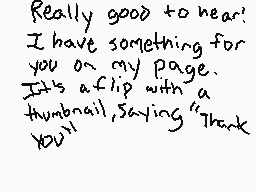 Really good to hear!
I have something for
you on my page.
It's a flip with a
thumbnail, saying "Thank
you"